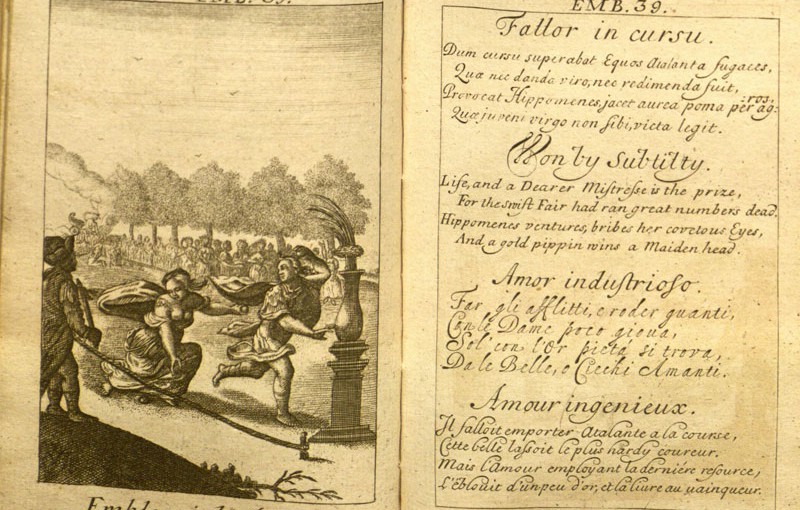 EMB. 39.
Emblem
EMB. 39.
Fallor in cursu.
Dum cursu superabat Equos Atalanta fugaces,
Quæ nec danda viro, nec redimenda fuit,
Provocat Hippomenes, jacet aurea poma per ag:ros,
Quæ juveni virgo non sibi, victa legit.
Won by Subtilty.
Life, and a Dearer Mistresse is the prize,
For the swift Fair had ran great numbers dead.
Hippomenes ventures, bribes her covetous Eyes,
And a gold pippin wins a Maiden head.
Amor industrioso.
Far gli afflitti, e roder guanti,
Con le Dame poco giova,
Sol' con l'Or pietà si trova,
Da le Belle, o Ciechi Amanti.
Amour ingenieux.
Il falloit emporter Atalante a la course,
Cette belle lassoit le plus hardy coureur.
Mais l'Amour employant la derniére resource,
L'éblouit d'un peu d'or, et la livre au vainqueur.